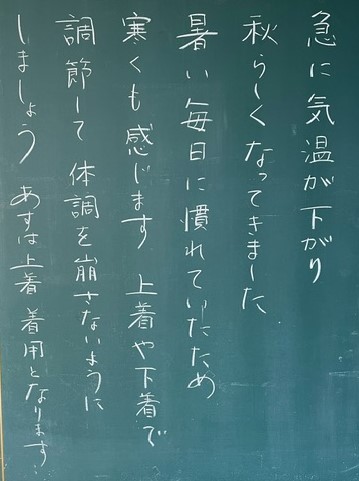 急に気温が下がり
秋らしくなってきました
暑い毎日に慣れていたため
寒くも感じます 上着や下着で
調節して 体調を崩さないように
しましょう あすは上着着用となります